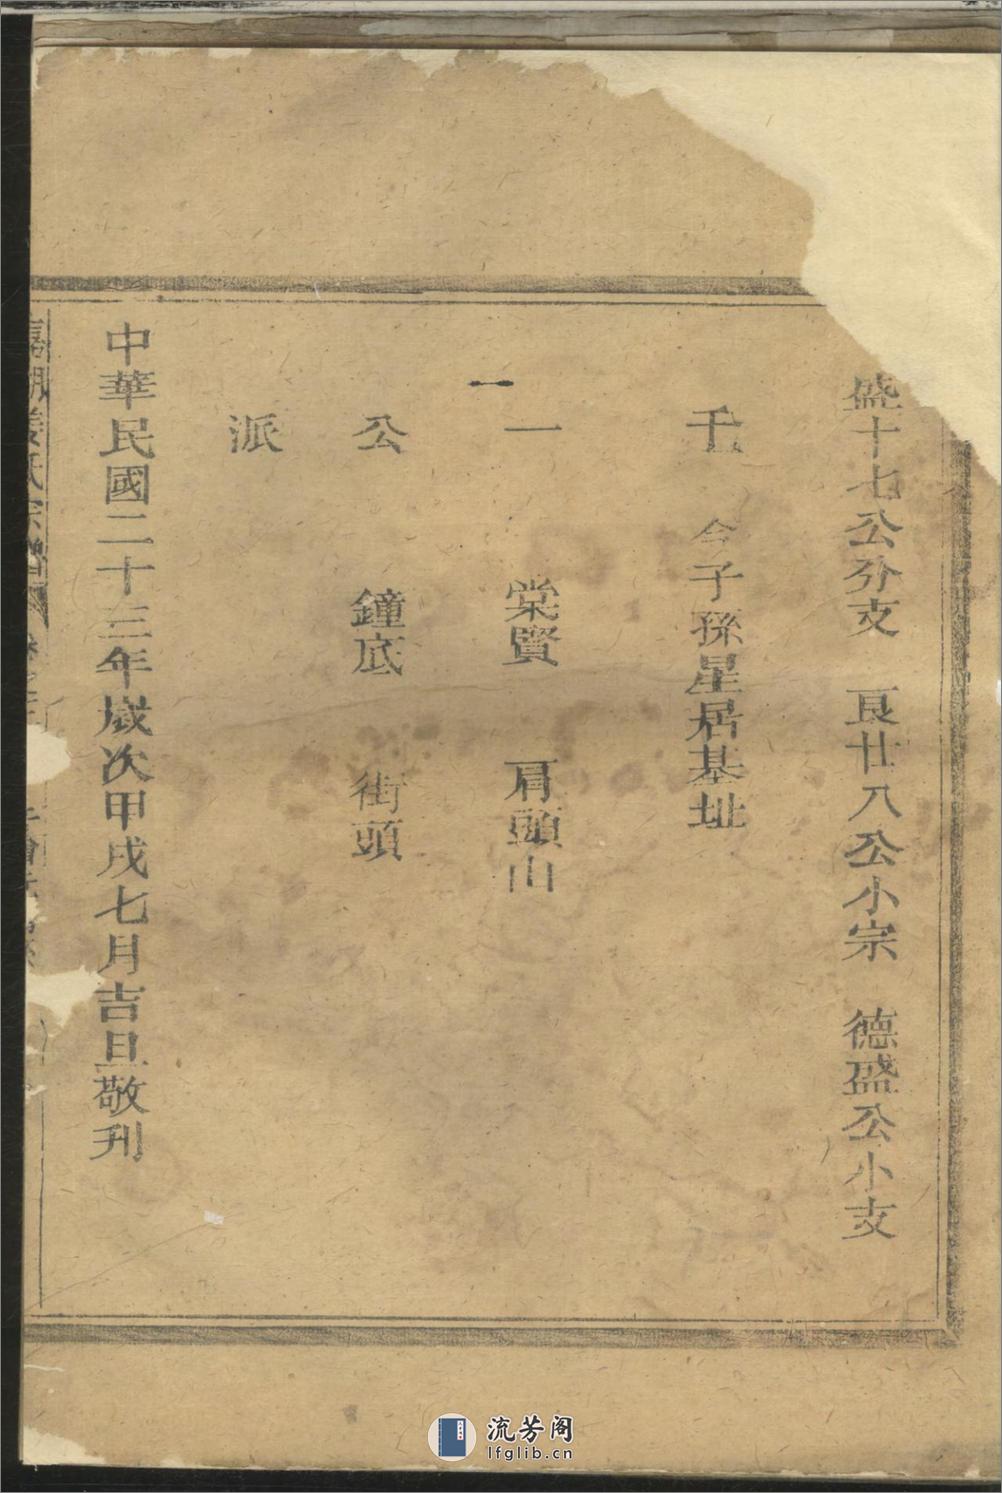 盛十七公分支　艮廿八公小宗　德盛公小支
千　今子孫星居基址
一　棠賢　肩頭山
公　鐘底　街頭
派
中華民國二十三年歲次甲戌七月吉旦敬刋
姜氏宗譜
流芳阁
lfglib.cn